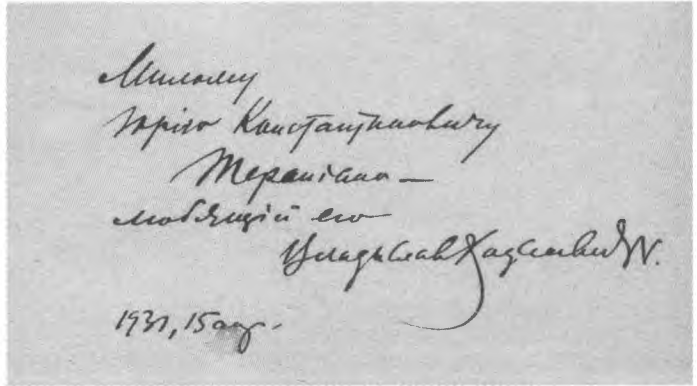 Милому
Юрію Константиновичу
Терапіано —
любящій его
Владислав Ходасевичъ.
1931, 15